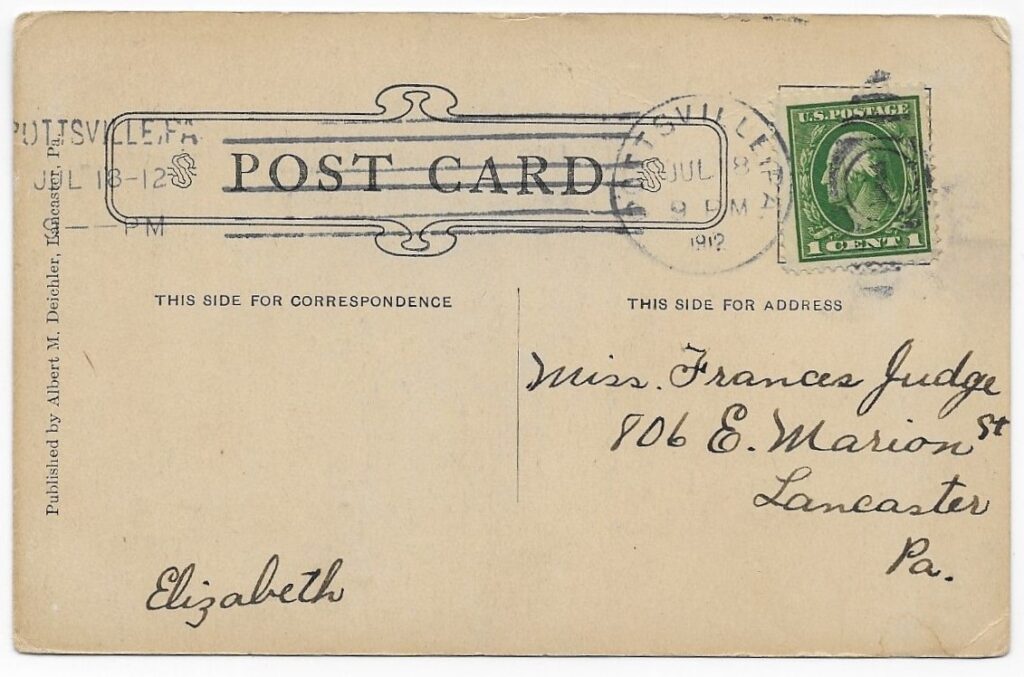 POTTSVILLE, PA.
JUL 18-12
9 — PM
POST CARD
POTTSVILLE, PA
JUL 18
9 PM
1912
U.S. POSTAGE
1 CENT 1
THIS SIDE FOR CORRESPONDENCE
THIS SIDE FOR ADDRESS
Published by Albert M. Deichler, Lancaster, Pa.
Miss. Frances Judge
806 E. Marion St
Lancaster
Pa.
Elizabeth